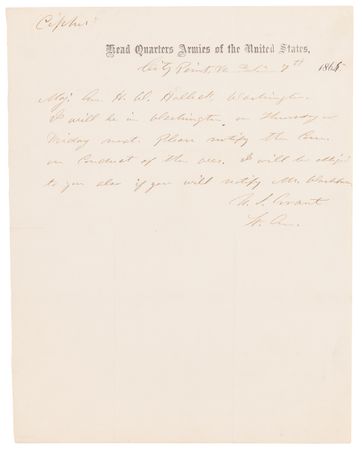 Cipher
Head Quarters Armies of the United States,
City Point, Va. Feb. 7th 1865
Maj. Gen. H. W. Halleck, Washington.
I will be in Washington on Thursday or
Friday next. Please notify the Com.
on Conduct of the War. I will be obliged
to you also if you will notify Mr. Washburn
U. S. Grant
Lt. Gen.